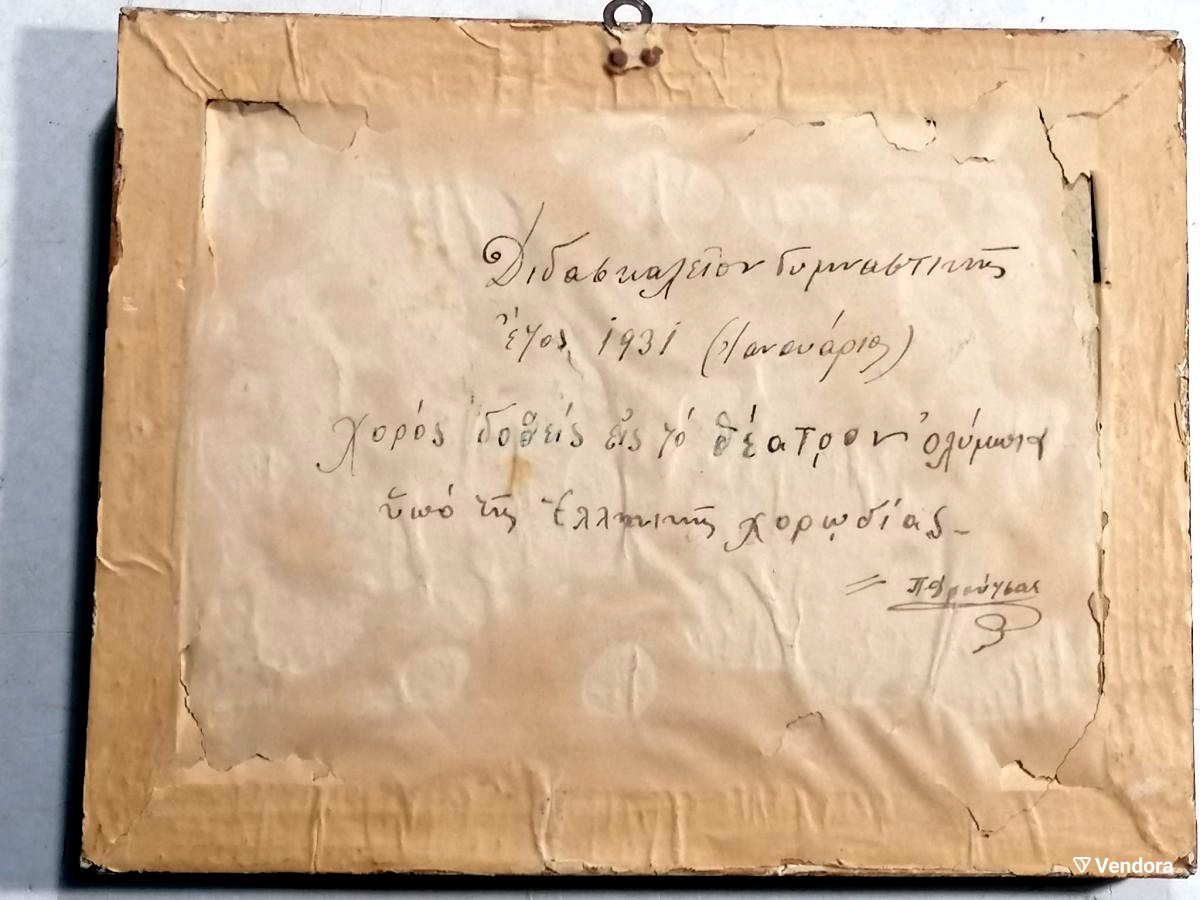 Διδασκαλεῖον Γυμναστικῆς
Ἔτος 1931 (Ἰανουάριος)
Χορός δοθείς εἰς τό θέατρον Ὀλύμπια
ὑπό τῆς Ἑλληνικῆς χορῳδίας -
Vendora